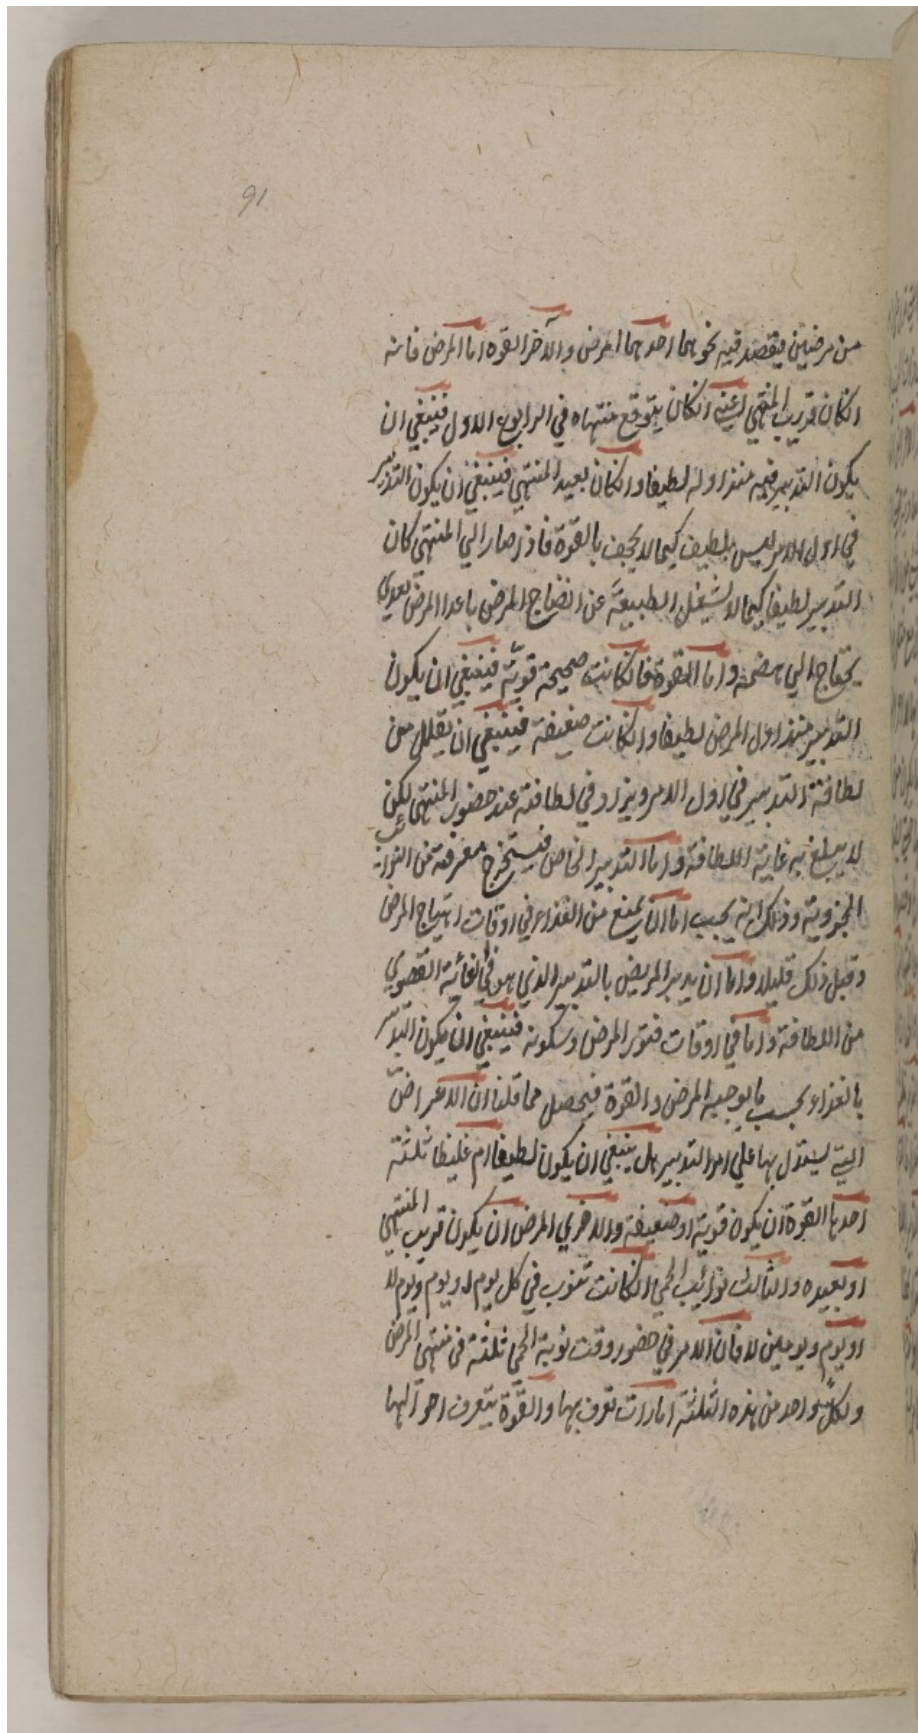 91
من مرضين يقصد فيه نحوهما احدهما المرض والآخر القوه اما المرض فانه
انكان قريب المنتهي اعني انكان يتوقع منتهاه في الرابوع الاول فينبغي ان
يكون التدبير فيه منذ اوله لطيفا وانكان بعيد المنتهي فينبغي ان يكون التدبير
في اول الامر ليس بلطيف كيما لا يجحف بالقوة فاذا صار الي المنتهي كان
التدبير لطيفا كيما لا يشغل الطبيعة عن انضاج المرض باعدا المرض
يحتاج الي هضمه واما القوة فانكانت صحيحة قويّة فينبغي ان يكون
التدبير منذ اول المرض لطيفا وانكانت ضعيفة فينبغي ان يقلل من
لطافة التدبير في اول الامر ويزاد في لطافته عند حضور المنتهي لكن
لا يبلغ به غاية اللطافة واما التدبير الخاص فيستخرج معرفته من النوائب
الجزوية وذلك انه يجب اما ان يمنع من الغذاء في اوقات اهتياج المرض
وقبل ذلك قليلا واما ان يدبر المريض بالتدبير الذي هو في الغاية القصوي
من اللطافة واما في اوقات فتور المرض وسكونه فينبغي ان يكون التدبير
بالغذاء بحسب ما يوجبه المرض والقوة فيحصل مما قلنا ان الاعراض
التي يستدل بها علي امر التدبير هل ينبغي ان يكون لطيفا ام غليظا ثلثة
احدها القوة ان يكون قوية او ضعيفة والاخري المرض ان يكون قريب المنتهي
او بعيده والثالث نوائب الحمي انكانت تنوب في كل يوم او يوم ويوم لا
او يوم ويومين لا فان الامر في حضور وقت نوبة الحما ثلثة في منتهي المرض
ولكل واحد من هذه الثلثة امارات تعرف بها والقوة يتعرف احوالها